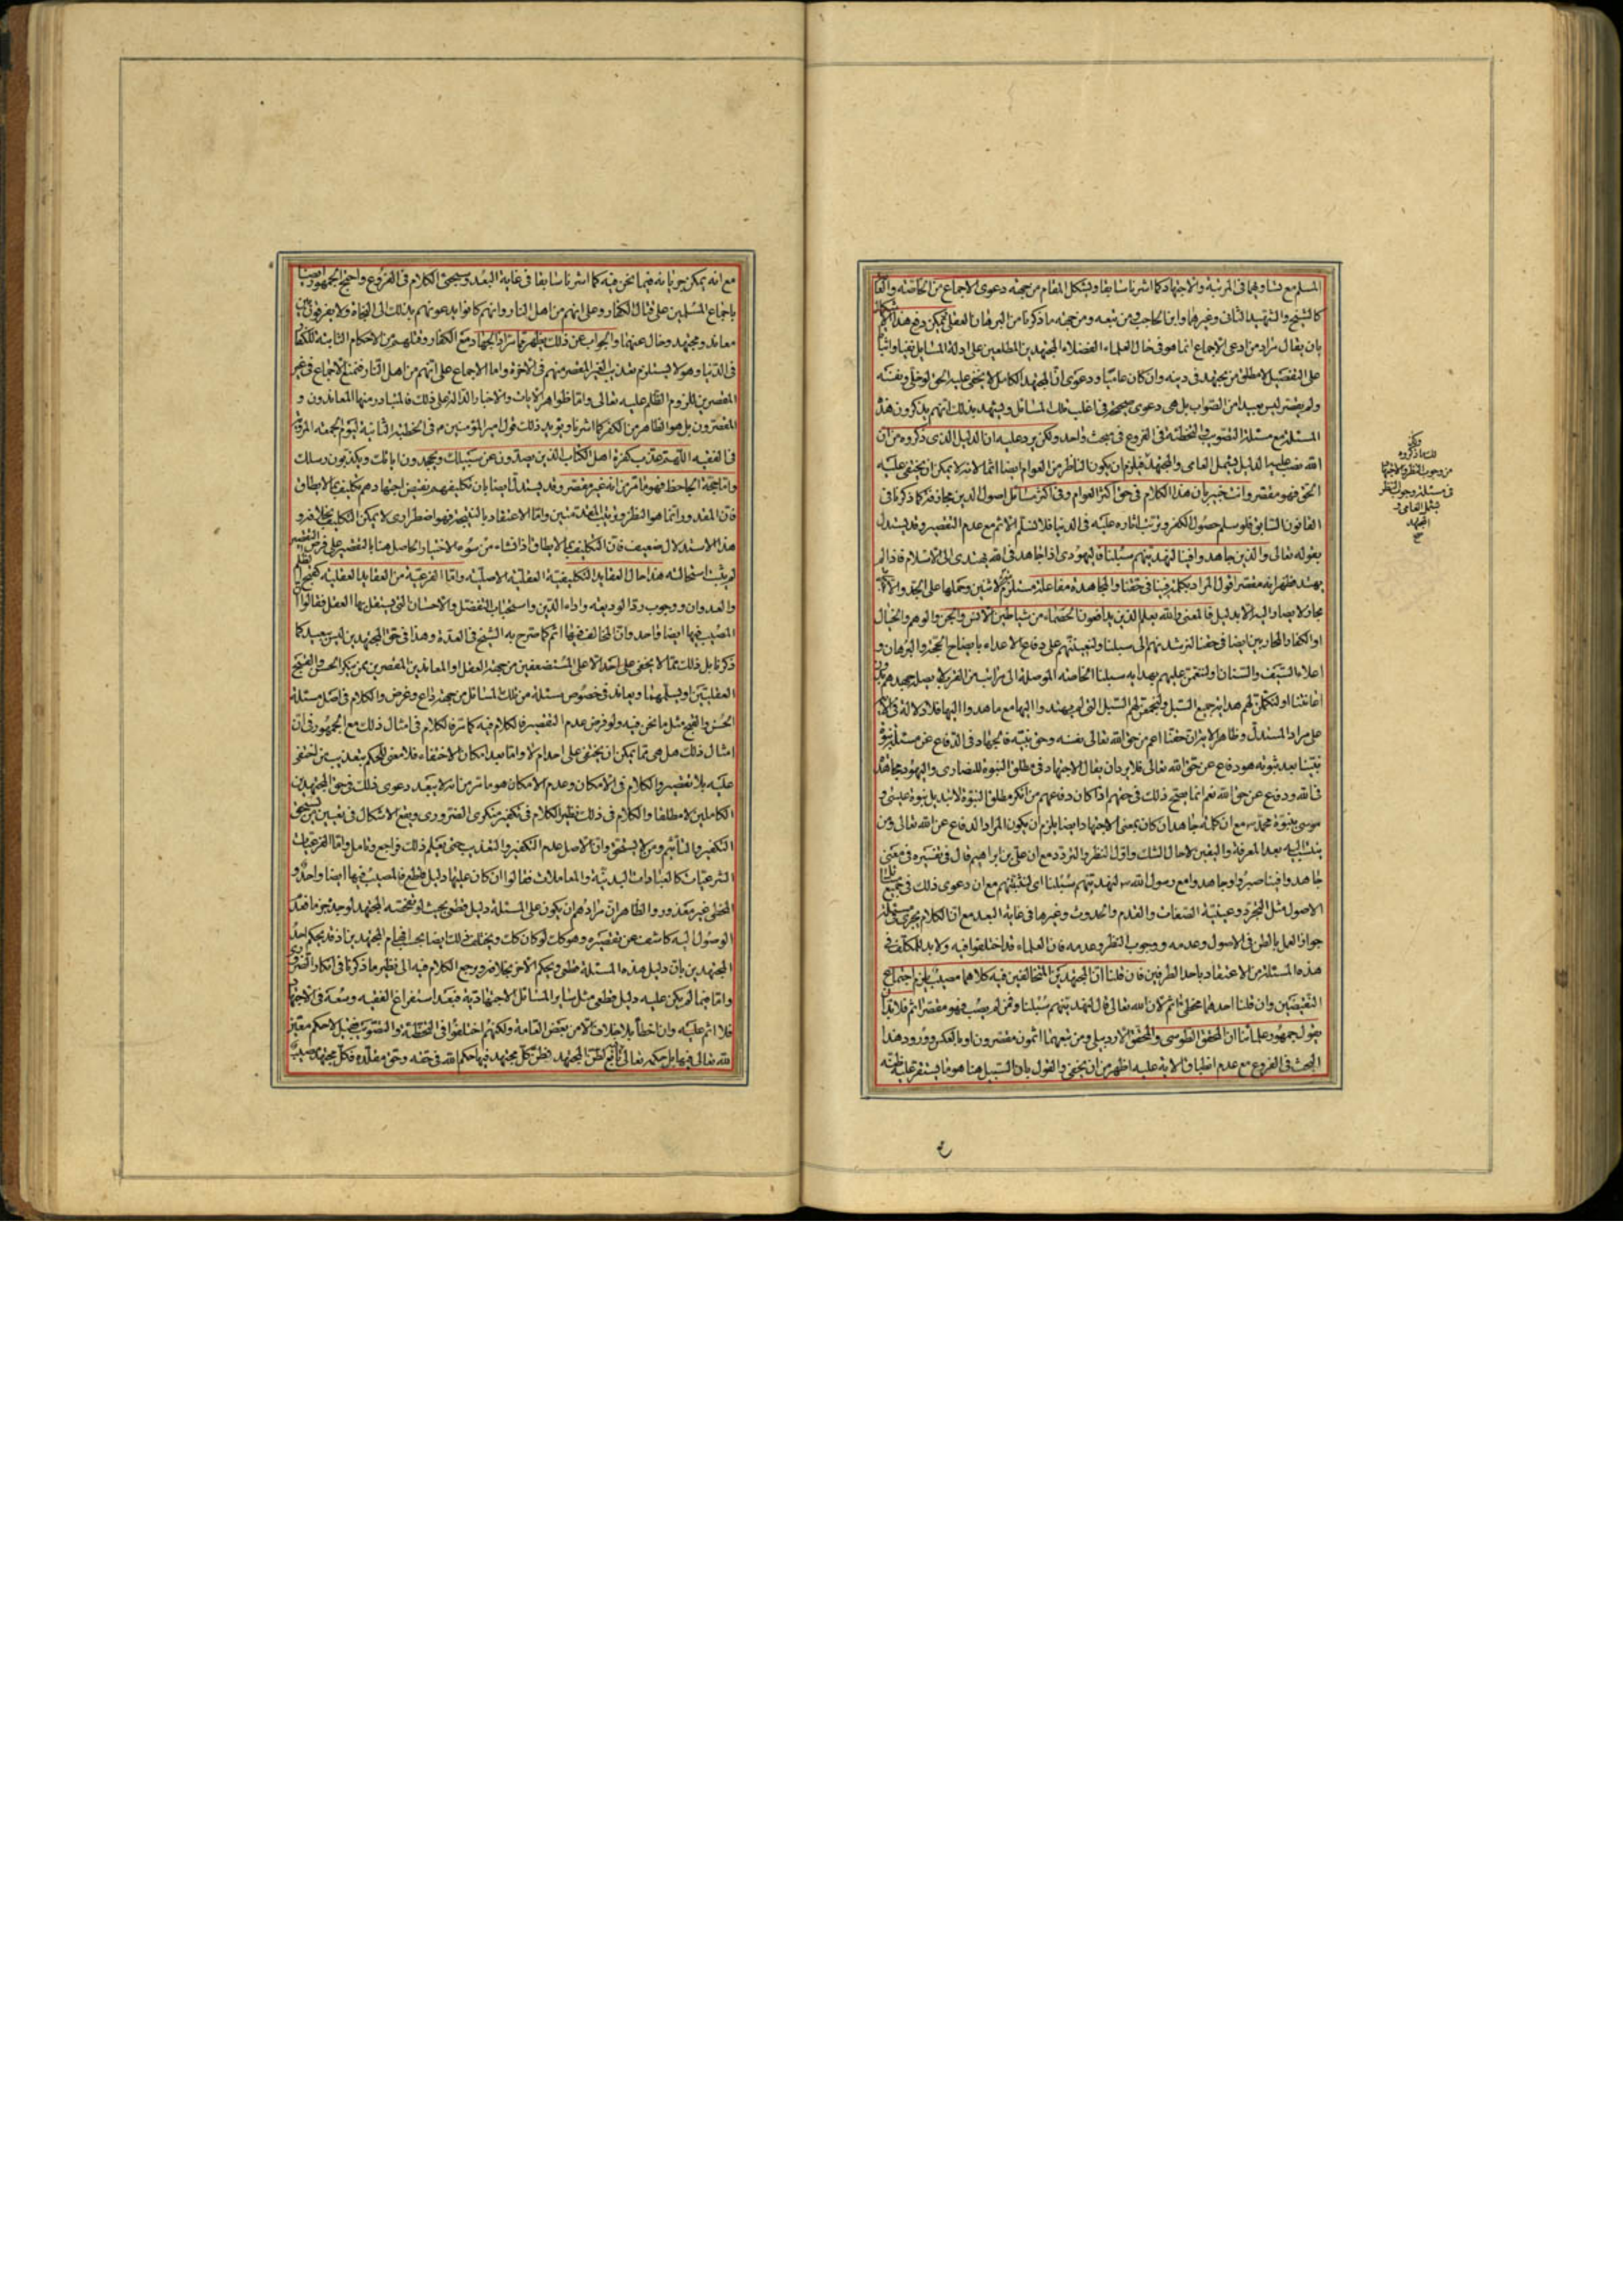 المسلم مع تساويهما في المرتبة والاجتهاد كما اشرنا سابقا ويشكل المقام من جهة دعوى الاجماع من الخاصة والعامة
كالشيخ والشهيد الثاني وغيرهما وابن الحاجب ومن تبعه ومن جهة ما ذكرنا من البرهان العقلي فيمكن دفع هذا الاشكال
بان يقال مراد من ادعى الاجماع انما هو في حال العلماء الفضلاء المجتهدين المطلعين على ادلة المسايل نفيا واثباتا
على التفصيل لا مطلق من يجتهد في دينه وان كان عاميا ودعوى ان المجتهد الكامل لا يخفى عليه الحق لو خلى ونفسه
ولم يقصر ليس ببعيد من الصواب بل هي دعوى صحيحة في اغلب تلك المسائل ويشهد بذلك انهم يذكرون هذه
المسئلة مع مسئلة التصويب والتخطئة في الفروع في مبحث واحد ولكن يرد عليه ان الدليل الذي ذكروه من ان
الله نصب عليها الدليل يشمل العامي والمجتهد فيلزم ان يكون الناظر من العوام ايضا اثما لانه لا يمكن ان يختفى عليه
الحق فهو مقصر وانت خبير بان هذا الكلام في حق اكثر العوام وفي اكثر مسائل اصول الدين مجازفة كما ذكرنا في
القانون السابق فلو سلم حصول الكفر وترتب اثاره عليه في الدنيا فلا نسلم الاثم مع عدم التقصير وقد يستدل
بقوله تعالى والذين جاهدوا فينا لنهدينهم سبلنا فاليهودي اذا جاهد في الله يهتدى الى الاسلام فاذا لم
يهتد ظهر انه مقصر اقول المراد بكلمة فينا في حقنا والمجاهدة مفاعلة مستلزمة لاثنين وحملها على الجد والاكتساب
مجاز لا يصار اليه الا بدليل فالمعنى والله يعلم الذين يدافعون الخصماء من شياطين الانس والجن والوهم والخيال
او الكفار المحاربين ايضا في حقنا لنرشدنهم الى سبلنا ولنعيننهم على دفاع الاعداء بايضاح الحجة والبرهان و
اعلاء السيف والسنان او لننعمن عليهم بهداية سبلنا الخاصة الموصلة الى مراتب من القرب لا يصل جهيدهم بدون
اعانتنا او لنكملن لهم هداية جميع السبل ولنحققن لهم السبل التي لم يهتدوا اليها مع ما هدوا اليها فلا دلالة في الاية
على مراد المستدل وظاهر الاية ان حقنا اعم من حق الله تعالى بنفسه وحق نبيه فالجهاد في الدفاع عن مسئلة نبوة
نبينا بعد ثبوته هو دفاع عن حق الله تعالى فلا يرد ان يقال الاجتهاد في مطلق النبوة للنصارى واليهود مجاهدة
في الله ودفع عن حق الله نعم انما يصح ذلك في حقهم اذا كان دفاعهم من انكر مطلق النبوة لا تبديل نبوة عيسى و
موسى بنبوة محمد ص مع ان كلمة جاهدوا ان كان بمعنى الاجتهاد ايضا يلزم ان يكون المراد الدفاع عن الله تعالى ومن
ينتسب اليه بعد المعرفة واليقين لا حال الشك واول النظر والتردد مع ان علي بن ابراهيم قال في تفسيره في معنى
جاهدوا فينا صبروا وجاهدوا مع رسول الله ص لنهدينهم سبلنا اي لنثبتنهم مع ان دعوى ذلك في جميع تلك
الاصول مثل التجرد وعينية الصفات والقدم والحدوث وغيرها في غاية البعد مع ان الكلام يجري في مسئلة
جواز العمل بالظن في الاصول وعدمه ووجوب النظر وعدمه فان العلماء قد اختلفوا فيه ولا بد للمكلف في
هذه المسئلة من الاعتقاد باحد الطرفين فان قلنا ان المجتهدين المتخالفين فيه كلاهما مصيب يلزم اجتماع
النقيضين وان قلنا احدهما مخطئ اثم لان الله تعالى قال لنهدينهم سبلنا ومن لم يصب فهو مقصر اثم فلا بد ان
يقول جمهور علمائنا ان المحقق الطوسي والمحقق الاردبيلي ومن تبعهما اثمون مقصرون او بالعكس وورود هذا
البحث في الفروع مع عدم انطباق الاية عليه اظهر من ان يخفى والقول بان السبيل هنا هو ما يستقر عليه ظنه
ولكن
ذلك ما ذكروه
من وجوب النظر والاجتهاد
في مسئلة وجوب النظر
يشمل العامي و
المجتهد
مع انه يمكن جريانه فيما نحن فيه كما اشرنا سابقا في غاية البعد وسيجئ الكلام في الفروع واحتج الجمهور ايضا
باجماع المسلمين على قتال الكفار وعلى انهم من اهل النار وانهم كانوا يدعونهم بذلك الى النجاة ولا يفرقون بين
معاند ومجتهد وخال عنهما والجواب عن ذلك يظهر مما مر اذ الجهاد مع الكفار وقتلهم من الاحكام الثابتة للكفار
في الدنيا وهو لا يستلزم تعذيب الغير المقصر منهم في الاخرة واما الاجماع على انهم من اهل النار فنمنع الاجماع في غير
المقصرين للزوم الظلم عليه تعالى واما ظواهر الايات والاخبار الدالة على ذلك فالمتبادر منها المعاندون و
المقصرون بل هو الظاهر من الكفر كما اشرنا ويؤيد ذلك قول امير المؤمنين ع في الخطبة الثانية ليوم الجمعة المروية
في الفقيه اللهم عذب كفرة اهل الكتاب الذين يصدون عن سبيلك ويجحدون اياتك ويكذبون رسلك
واما حجة الجاحظ فهو ما مر من انه غير مقصر وقد يستدل ايضا بان تكليفهم بنقيض اجتهادهم تكليف بما لا يطاق
فان المقدور انما هو النظر وترتيب المقدمتين واما الاعتقاد بالنتيجة فهو اضطراري لا يمكن التكليف بخلافه و
هذا الاستدلال ضعيف فان التكليف بما لا يطاق اذا نشاء من سوء الاختيار الحاصل هنا بالتقصير على فرض التقصير
لم يثبت استحالته هذا حال العقايد التكليفية العقلية الاصلية واما الفرعية من العقايد العقلية كقبح الظلم
والعدوان ووجوب رد الوديعة واداء الدين واستحباب التفضل والاحسان التي يستقل بها العقل فقالوا ان
المصيب فيها ايضا واحد وان المخالف فيها اثم كما صرح به الشيخ في العدة وهذا في حق المجتهدين ليس ببعيد كما
ذكرنا بل ذلك مما لا يخفى على احد الا على المستضعفين من جهة العقل والمعاندين المقصرين ممن ينكر الحسن والقبح
العقليين او يسلمهما ويعاند في خصوص مسئلة من تلك المسائل من جهة داع وغرض والكلام في اصل مسئلة
الحسن والقبح مثل ما نحن فيه ولو فرض عدم التقصير فالكلام فيه كما مر فالكلام في امثال ذلك مع الجمهور في ان
امثال ذلك هل هي مما يمكن ان يختفى على احد ام لا واما بعد امكان الاختفاء فلا معنى للحكم بتعذيب من اختفى
عليه بلا تقصير والكلام في الامكان وعدم الامكان هو ما مر من انه لا يبعد دعوى ذلك في حق المجتهدين
الكاملين لا مطلقا والكلام في ذلك نظير الكلام في تكفير منكرى الضروري ويقع الاشكال في تعيين من يستحق
التكفير والتأثيم ومن لا يستحق وان الاصل عدم التكفير والتعذيب حتى يعلم ذلك فراجع وتامل واما الفرعيات
الشرعيات كالعبادات البدنية والمعاملات فقالوا ان كان عليها دليل قطع فالمصيب فيها ايضا واحد و
المخطي غير معذور والظاهر ان مرادهم ان يكون على المسئلة دليل قطعي بحيث لو تفحصه المجتهد لوجده جزما فعدم
الوصول اليه كاشف عن تقصيره وهو كك لو كان كك ويختلف ذلك ايضا بحسب افهام المجتهدين اذ قد يحكم احد
المجتهدين بان دليل هذه المسئلة قطعي ويحكم الاخر بخلافه ويرجع الكلام فيه الى نظير ما ذكرنا في انكار الضروري
واما فيما لم يكن عليه دليل قطعي مثل ساير المسائل الاجتهادية فبعد استفراغ الفقيه وسعه في الاجتهاد
فلا اثم عليه وان اخطأ بلا خلاف الا من بعض العامة ولكنهم اختلفوا في التخطئة والتصويب فقيل لا حكم معين
لله تعالى فيها بل حكمه تعالى تابع لظن المجتهد فظن كل مجتهد فيها حكم الله في حقه وحق مقلده فكل مجتهد مصيب